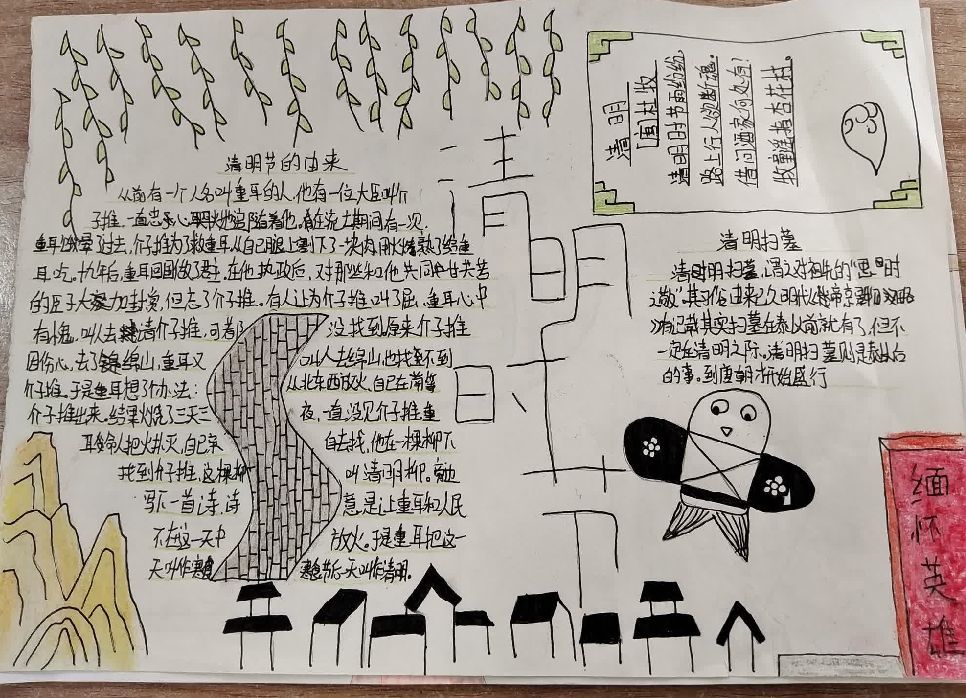 清明节的由来
从前有一个人名叫重耳的人,他有一位大臣叫介
子推,一直忠心耿耿地追随着他。在流亡期间有一次,
重耳饿晕了过去,介子推为了救重耳,从自己腿上割下了一块肉用火烤熟了给重
耳吃。十九年后,重耳回国做了君主,在他执政后,对那些和他共同甘共苦
的臣子大力封赏,但忘了介子推。有人让为介子推叫了屈,重耳心中
有愧,叫人去请介子推,可着 没找到原来介子推
因伤心,去了绵山,重耳又 叫人去绵山也找不到
介子推。于是重耳想了办法: 从北东西放火,自己在南等
介子推出来。结果火烧了三天三 夜,一直没见介子推重
耳命人把火扑灭,自己亲 自去找,他在一棵柳下
找到介子推,这棵柳 叫清明柳。勉
写下一首诗,诗 意是让重耳和人民
不在这一天中 放火。于是重耳把这一
天叫作寒食 寒食节后一天叫作清明。
清明时节
清明
[唐]杜牧
清明时节雨纷纷,
路上行人欲断魂。
借问酒家何处有?
牧童遥指杏花村。
清明扫墓
清明扫墓,谓之对祖先的“思时
之敬”其习俗由来已久明代《帝京景物略》
记载其实扫墓在秦以前就有了,但不
一定在清明之际。清明扫墓则是秦以后
的事。到唐朝才开始盛行
缅怀英雄